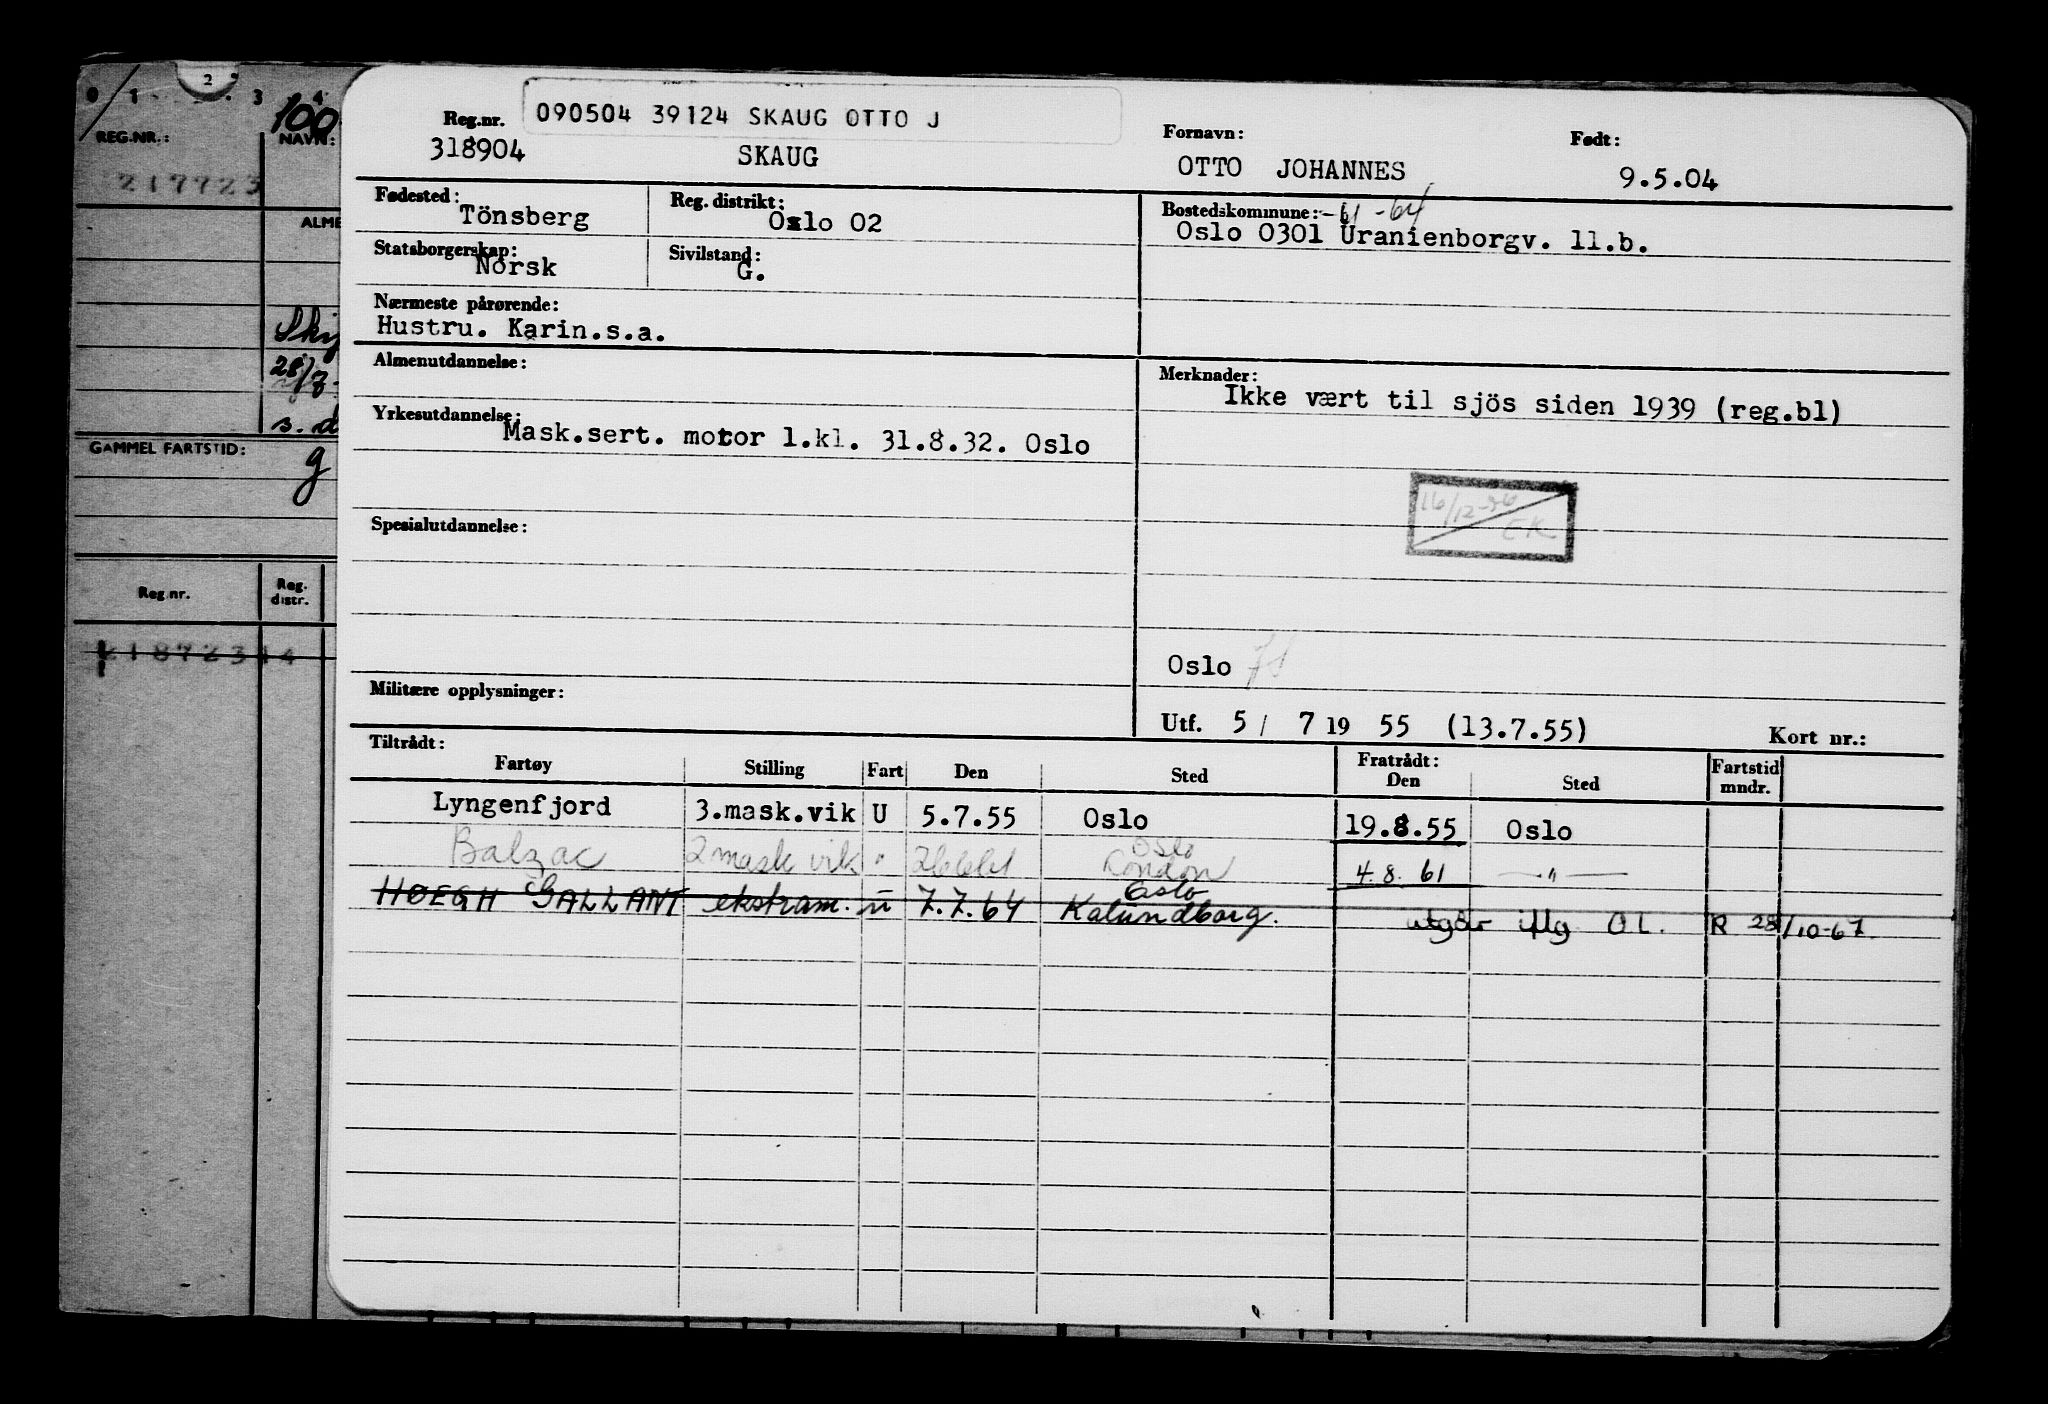 0 1 2 3 4
100
REG.NR.:
NAVN:
217723
ALME
28/7-
s. d
GAMMEL FARTSTID:
g
Reg.nr.
Reg. distr.
218723 14
090504 39124 SKAUG OTTO J
Reg.nr.
318904
SKAUG
Fornavn:
OTTO JOHANNES
Født:
9.5.04
Fødested:
Tönsberg
Reg. distrikt:
Oslo 02
Bostedskommune: -61 -64
Oslo 0301 Uranienborgv. 11.b.
Statsborgerskap:
Norsk
Sivilstand:
G.
Nærmeste pårørende:
Hustru. Karin.s.a.
Almenutdannelse:
Merknader:
Ikke vært til sjös siden 1939 (reg.bl)
Yrkesutdannelse:
Mask.sert. motor 1.kl. 31.8.32. Oslo
16/12-56
EK
Spesialutdannelse:
Oslo
Militære opplysninger:
Utf. 5/ 7 19 55 (13.7.55)
Kort nr.:
Tiltrådt:
Fratrådt:
Fartøy Stilling Fart Den Sted Den Sted Fartstid mndr.
Lyngenfjord 3.mask.vik U 5.7.55 Oslo 19.8.55 Oslo
Oslo
Balzac 2 mask vik " 26661 London 4.8.61 — " —
Oslo
HOEGH GALLANT ekstram. u 7.7.64 Kalundborg.
utgår iflg O L. R 28/10-67.